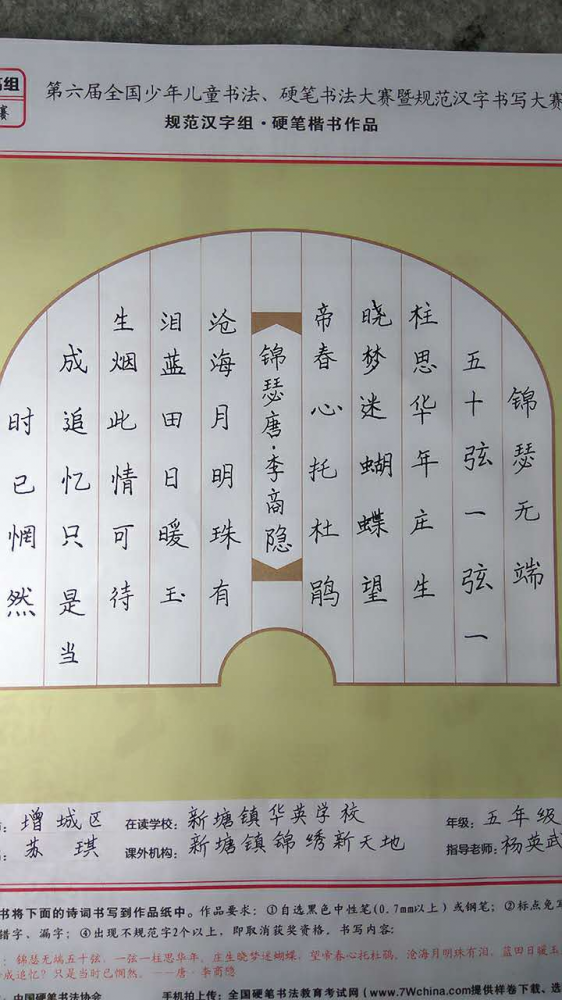 组
赛
第六届全国少年儿童书法、硬笔书法大赛暨规范汉字书写大赛
规范汉字组·硬笔楷书作品
锦瑟无端
五十弦一弦一
柱思华年庄生
晓梦迷蝴蝶望
帝春心托杜鹃
锦瑟唐·李商隐
沧海月明珠有
泪蓝田日暖玉
生烟此情可待
成追忆只是当
时已惘然
增城区 在读学校：新塘镇华英学校 年级：五年级
苏琪 课外机构：新塘镇锦绣新天地 指导老师：杨英武
书将下面的诗词书写到作品纸中。作品要求：①自选黑色中性笔(0.7mm以上)或钢笔；②标点免写
错字、漏字；④出现不规范字2个以上，即取消获奖资格。书写内容：
：锦瑟无端五十弦，一弦一柱思华年。庄生晓梦迷蝴蝶，望帝春心托杜鹃。沧海月明珠有泪，蓝田日暖玉
成追忆？只是当时已惘然。——唐·李商隐
中国硬笔书法协会 手机拍上传：全国硬笔书法教育考试网(www.7Wchina.com提供样卷下载、选